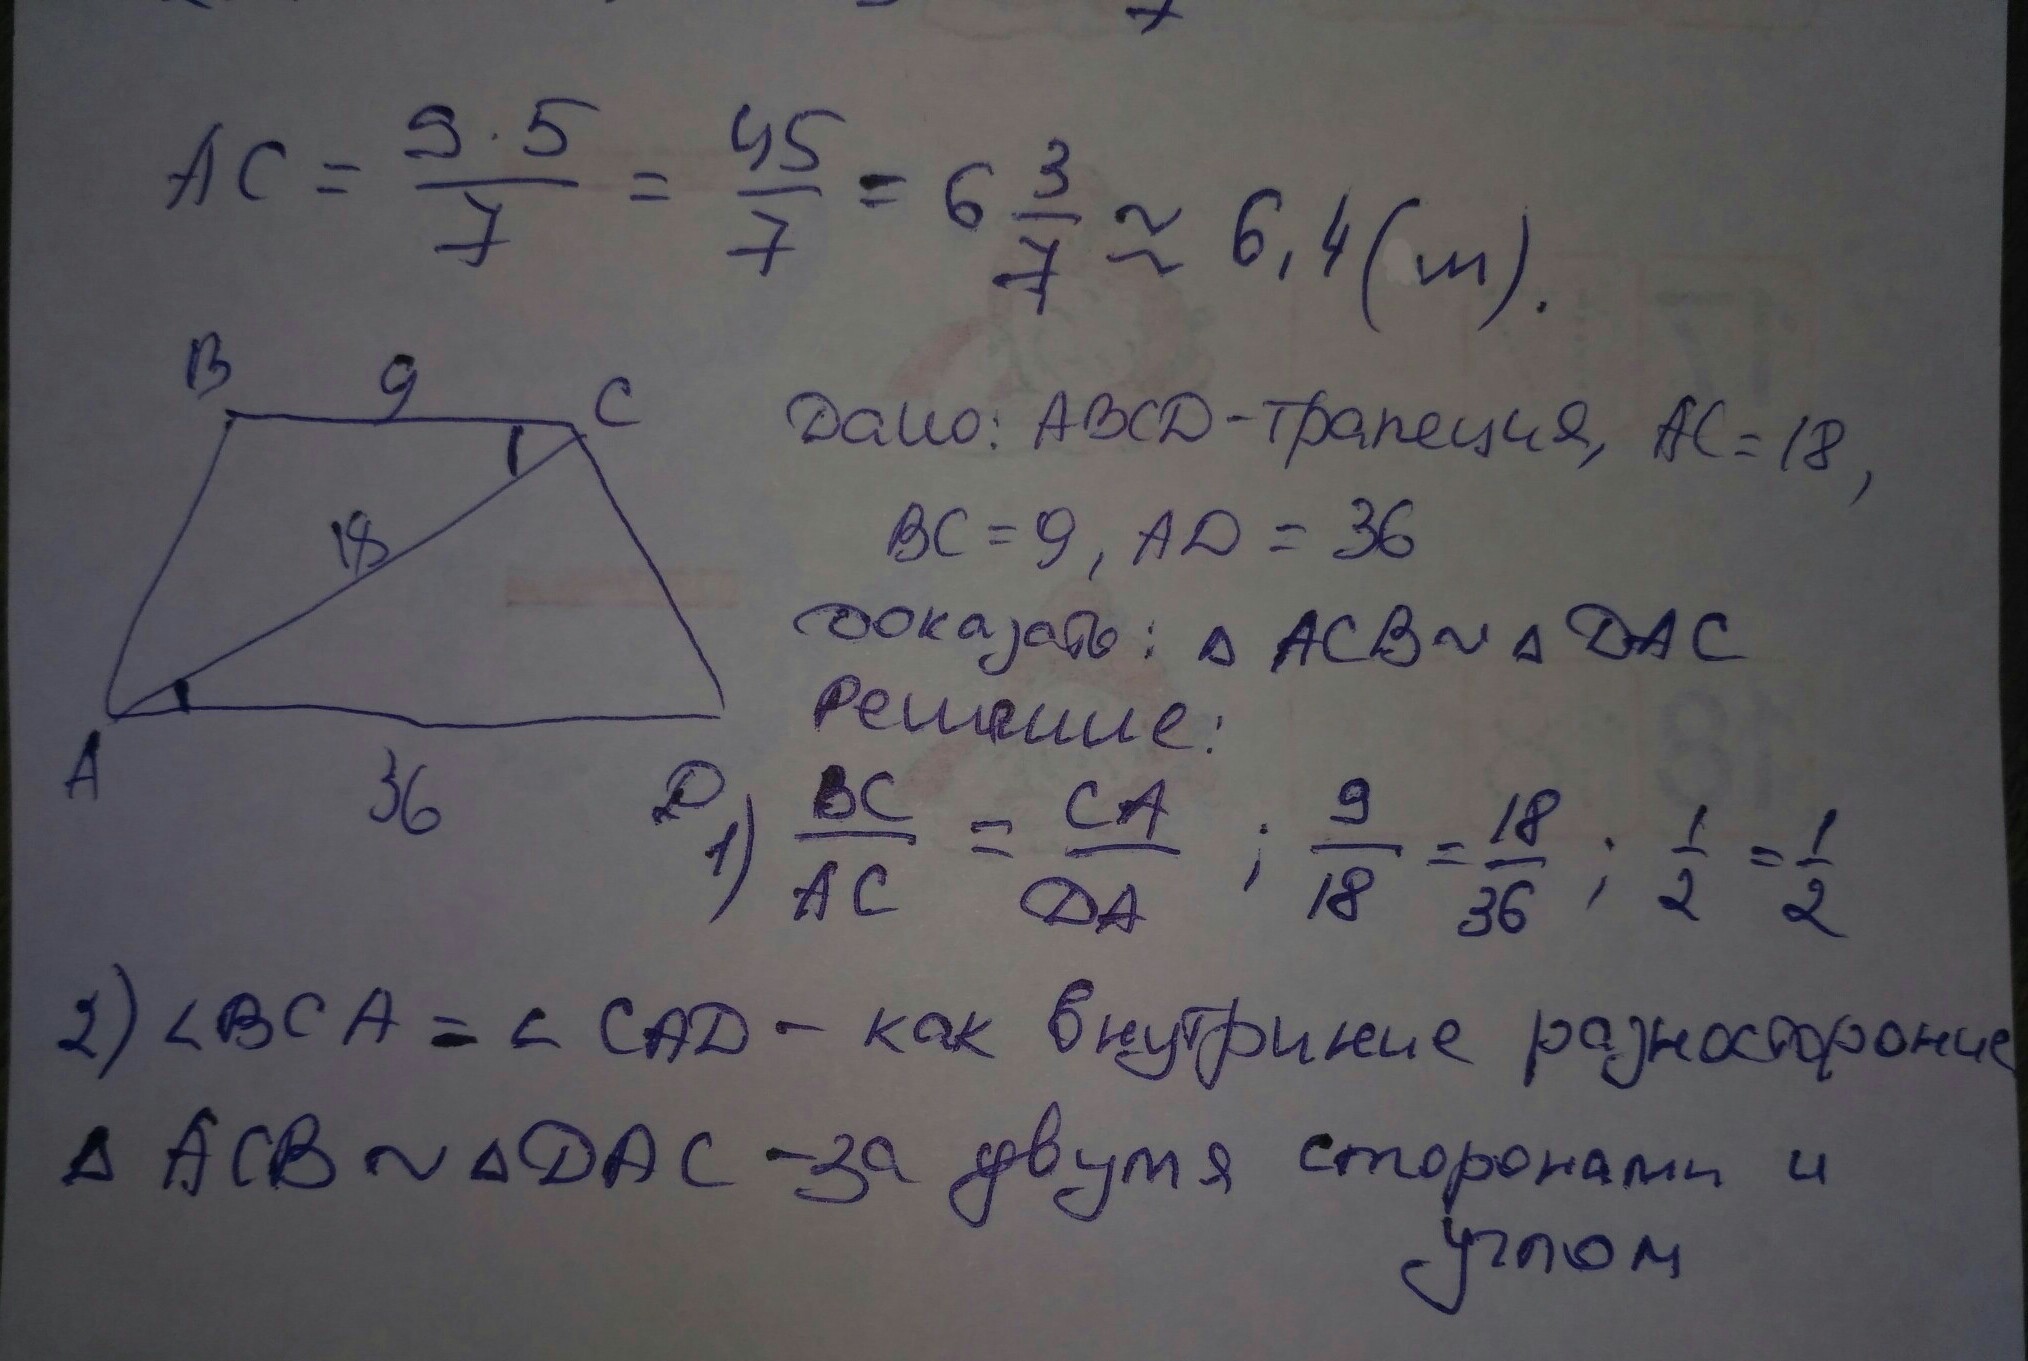 AC = 9·5/7 = 45/7 = 6 3/7 ≈ 6,4 (m).
B 9 C
18
A 36 D
Дано: ABCD - трапеция, AC = 18,
BC = 9, AD = 36
Доказать: △ ACB ~ △ DAC
Решение:
1) BC/AC = CA/DA ; 9/18 = 18/36 ; 1/2 = 1/2
2) ∠BCA = ∠ CAD - как внутриние разносторониe
△ ACB ~ △DAC - за двумя сторонами и
углом